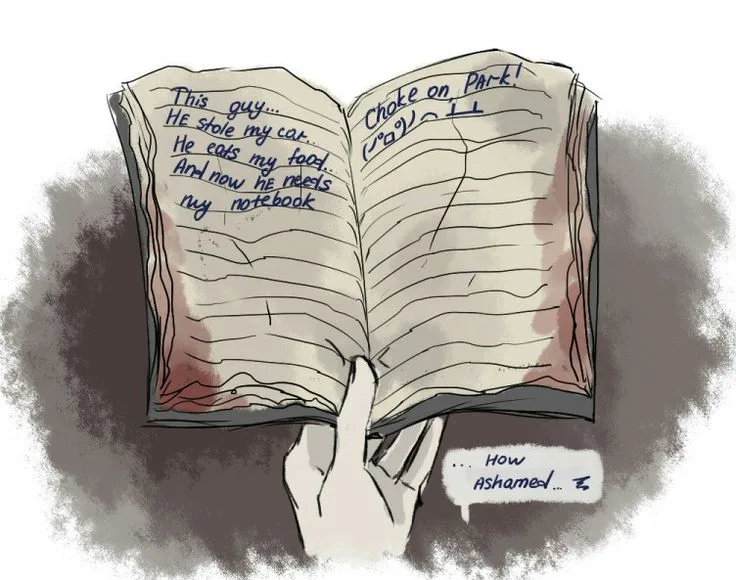 This guy...
HE stole my car...
He eats my food...
And now hE needs
my notebook
Choke on, PArk!
(╯°□°)╯⌒┻┻
... How
Ashamed...